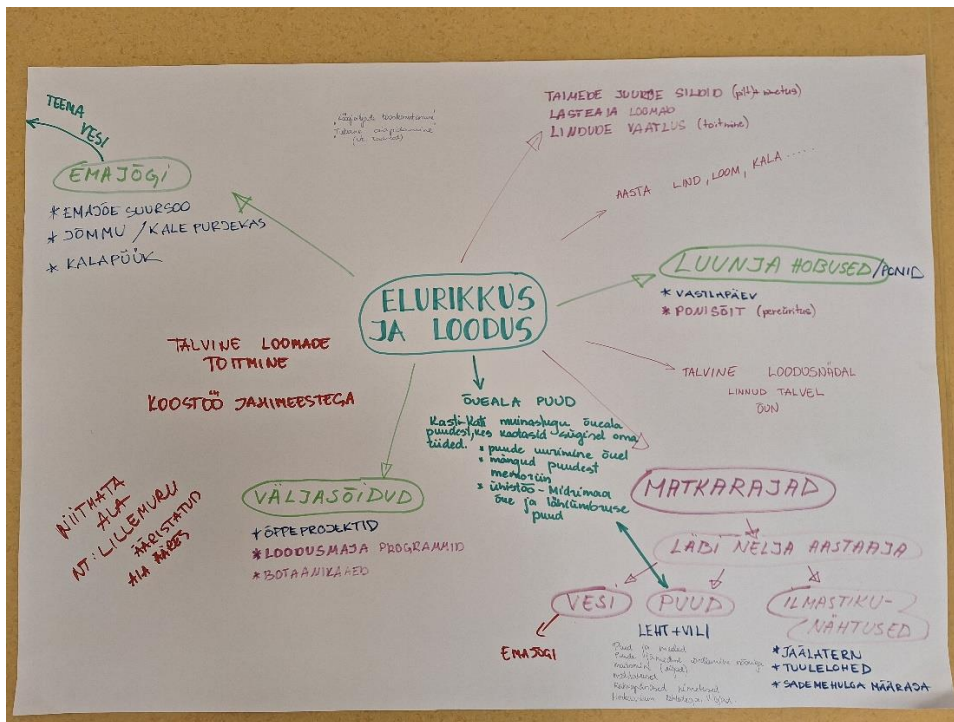 TEEMA
VESI
EMAJÕGI
* EMAJÕE SUURSOO
* JÕMMU / KALE PURJEKAS
* KALAPÜÜK
TAIMEDE JUURDE SILDID
LASTEAIA LOOMAD
LINDUDE VAATLUS (toitmine)
AASTA LIND, LOOM, KALA .....
LUUNJA HOBUSED / PONID
* VASTLAPÄEV
* PONISÕIT (pereüritus)
ELURIKKUS
JA LOODUS
TALVINE LOOMADE
TOITMINE
KOOSTÖÖ JAHIMEESTEGA
TALVINE LOODUSNÄDAL
LINNUD TALVEL
ÕUN
ÕUEALA PUUD
muinaslugu õueala
puudest, kes kaotasid sügisel oma
riided.
* puude uurimine õuel
* mängud puudest
* ühistöö - Midrimaa
õue ja lähiümbruse
puud
NIITMATA
ALA
NT: LILLEMURU
ÄÄRISTATUD
ALA ÄÄRES
VÄLJASÕIDUD
* ÕPPEPROJEKTID
* LOODUSMAJA PROGRAMMID
* BOTAANIKAAED
MATKARAJAD
LÄBI NELJA AASTAAJA
VESI
PUUD
ILMASTIKU-
NÄHTUSED
EMAJÕGI
LEHT + VILI
* JÄÄLATERN
* TUULELOHED
* SADEMEHULGA MÄÄRAJA